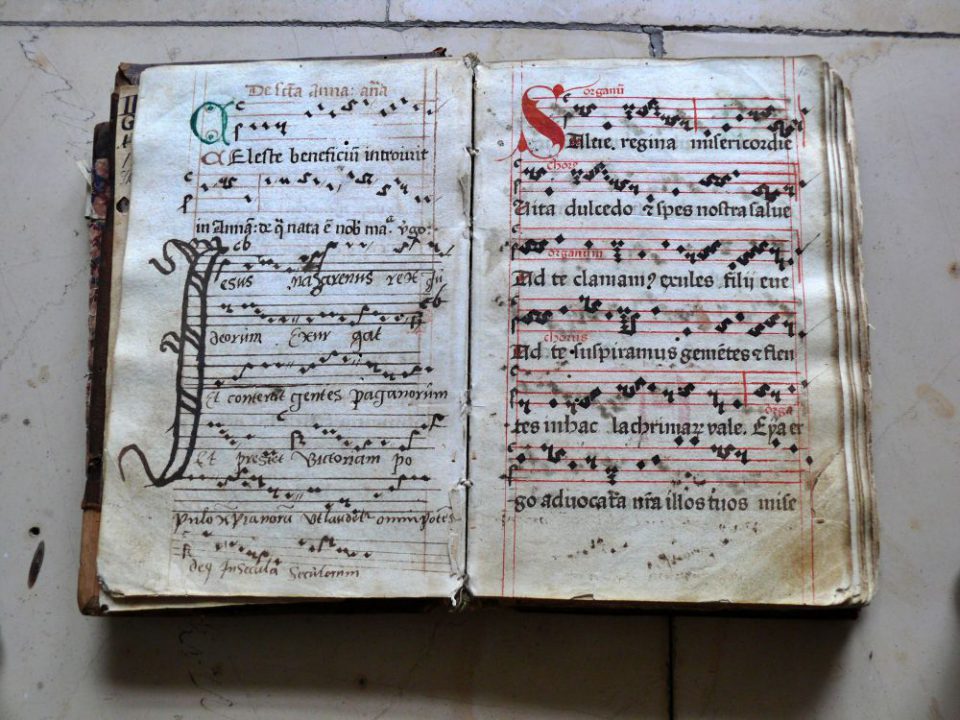 De scta Anna: aña
CAEleste beneficiũ introiuit
in Annã: de q̃ nata ẽ nob̃ ma. v̾go.
Iesus nazarenus rex Ju
deorum Exur gat
Et conterat gentes paganorum
Et prestet Victoriam po
pulo xp̃ianorũ
in secula seculorum
organũ
SAlue, regina misericordie
chorꝰ
Uita dulcedo ⁊ spes nostra salue
organum
Ad te clamamꝰ exules filij eue
chorus
Ad te suspiramus gemẽtes ⁊ flen
orga
tes in hac lachrimaꝝ vale. Eya er
go aduocata nr̃a illos tuos mise